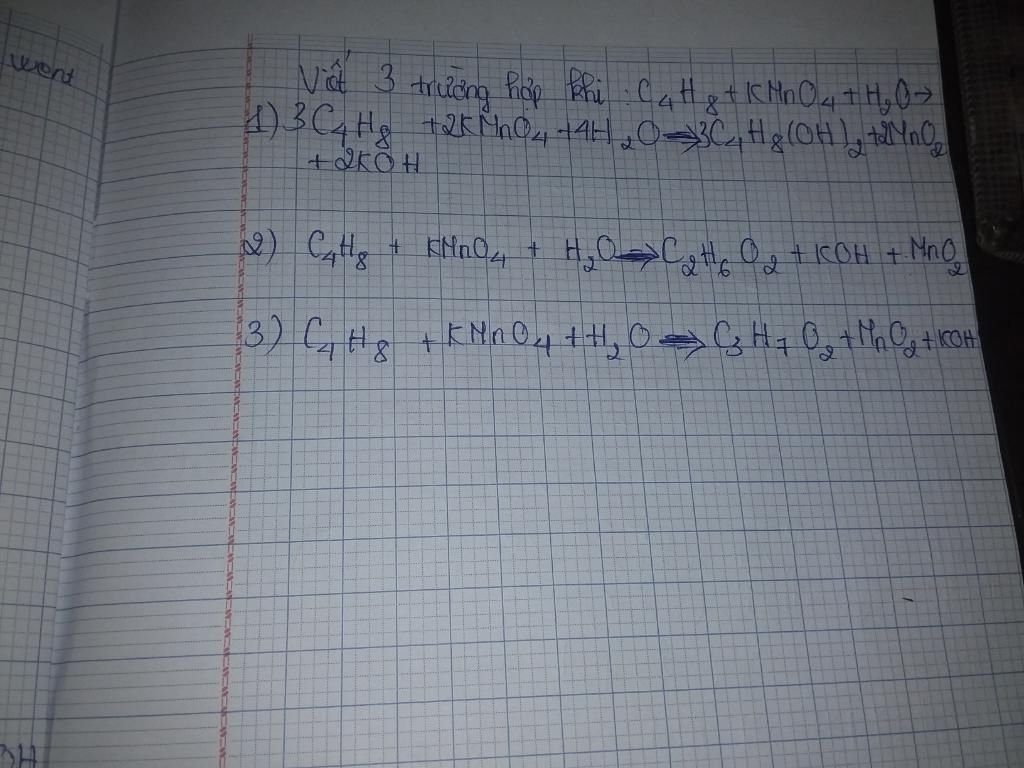 word
Viết 3 trường hợp khi : C₄H₈ + KMnO₄ + H₂O →
1) 3C₄H₈ + 2KMnO₄ + 4H₂O → 3C₄H₈(OH)₂ + 2MnO₂
+ 2KOH
2) C₄H₈ + KMnO₄ + H₂O → C₂H₆O₂ + KOH + MnO₂
3) C₄H₈ + KMnO₄ + H₂O → C₃H₇O₂ + MnO₂ + KOH
OH